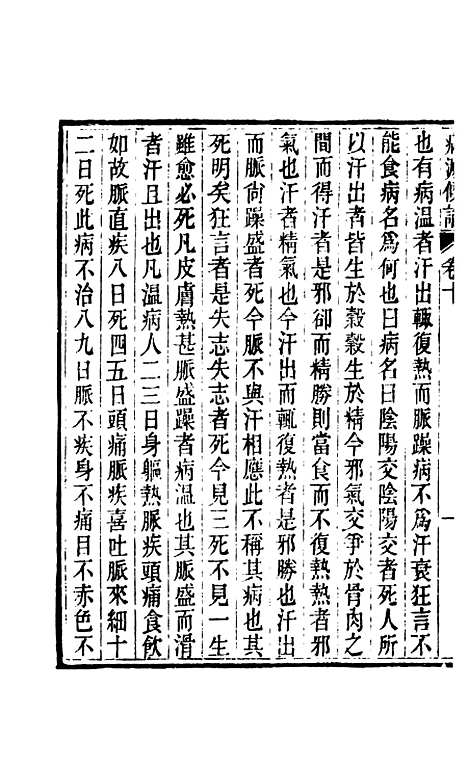 病源候論 卷十
也有病溫者汗出輒復熱而脈躁病不爲汗衰狂言不
能食病名爲何也曰病名曰陰陽交陰陽交者死人所
以汗出者皆生於穀穀生於精今邪氣交爭於骨肉之
間而得汗者是邪卻而精勝則當食而不復熱熱者邪
氣也汗者精氣也今汗出而輒復熱者是邪勝也汗出
而脈尙躁盛者死今脈不與汗相應此不稱其病也其
死明矣狂言者是失志失志者死今見三死不見一生
雖愈必死凡皮膚熱甚脈盛躁者病溫也其脈盛而滑
者汗且出也凡溫病人二三日身軀熱脈疾頭痛食飮
如故脈直疾八日死四五日頭痛脈疾喜吐脈來細十
二日死此病不治八九日脈不疾身不痛目不赤色不